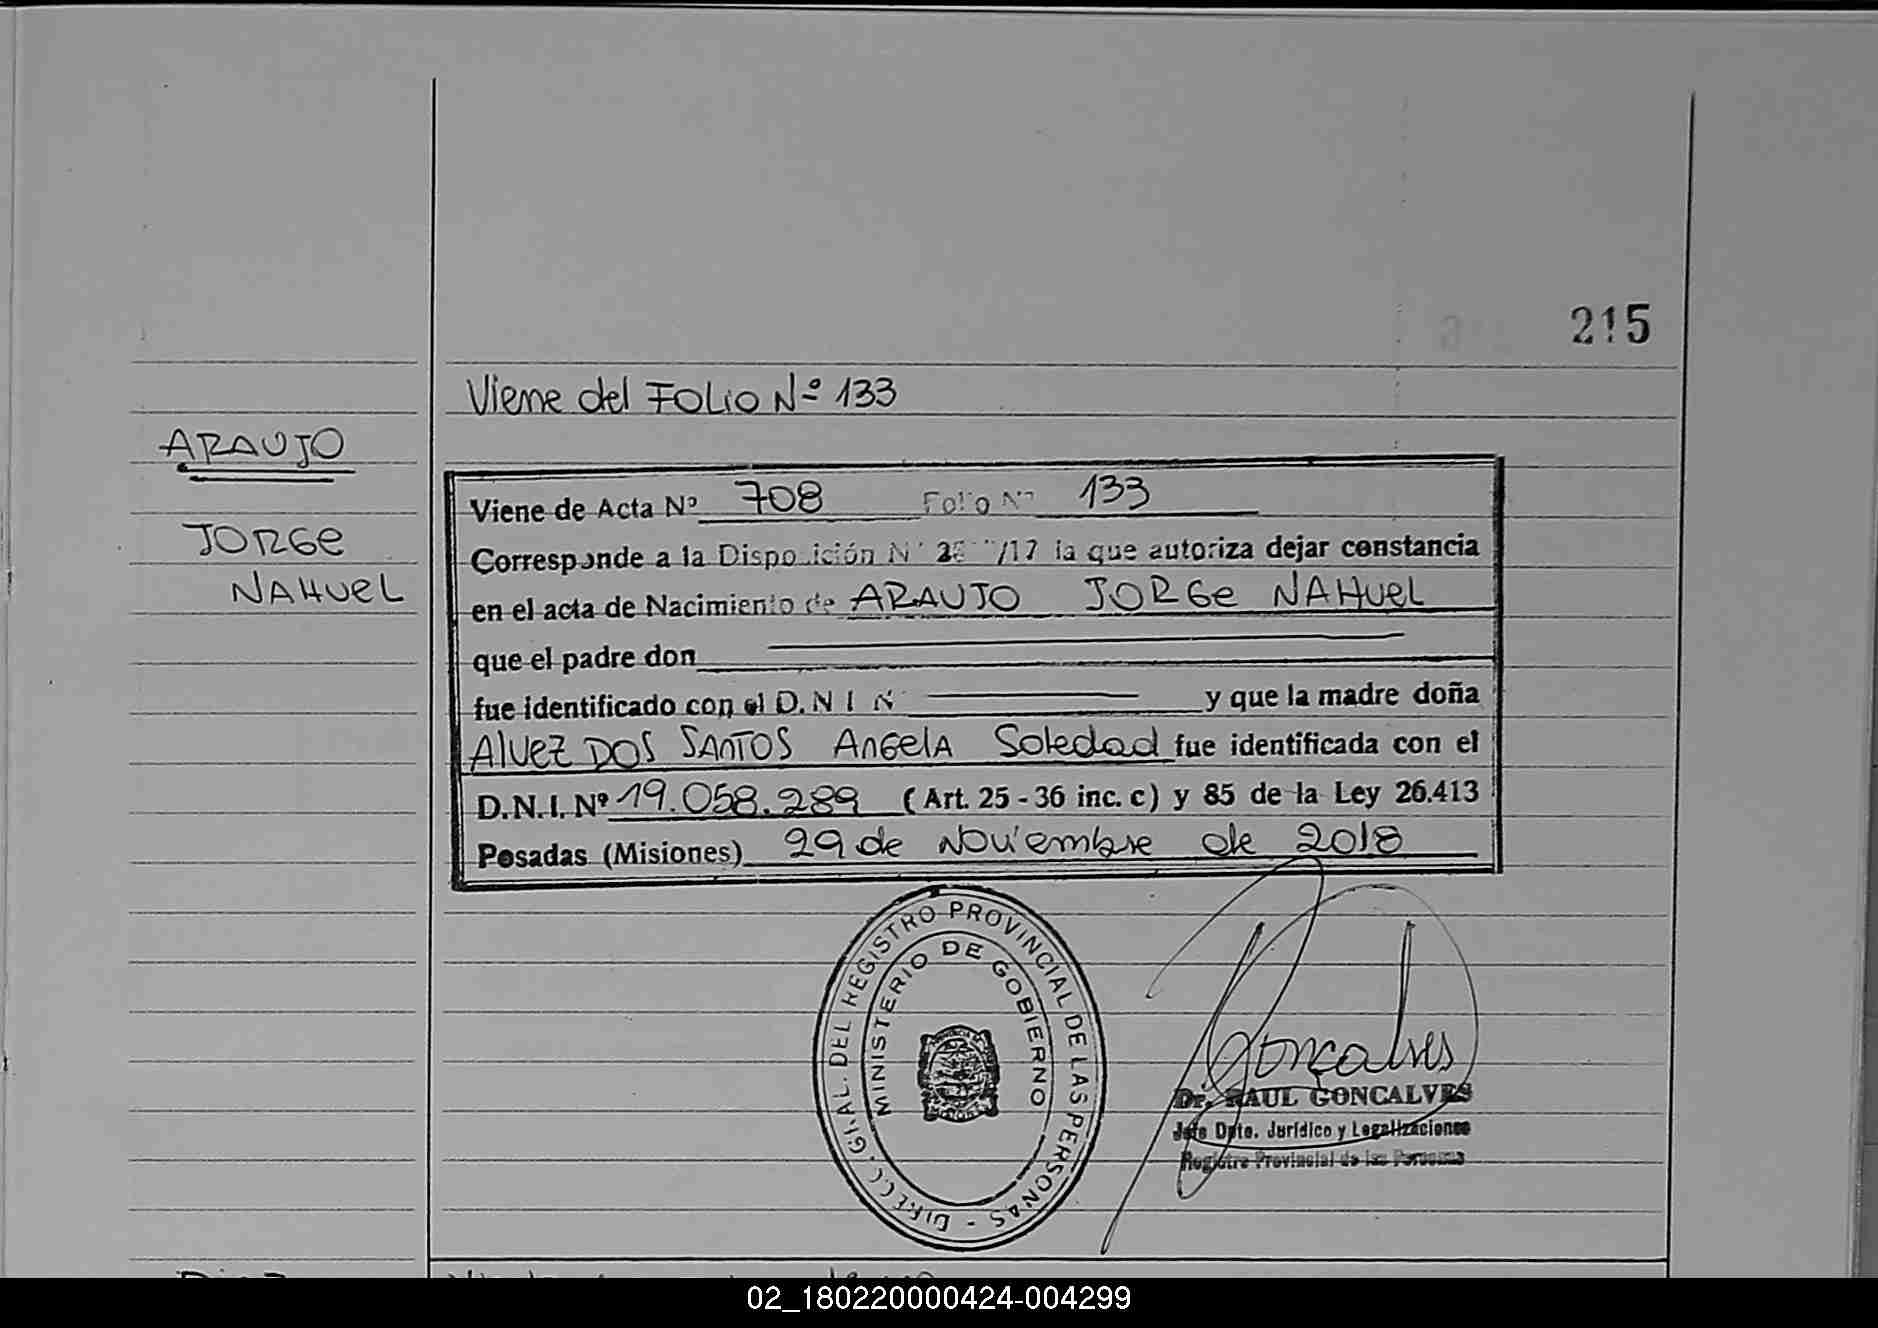 215
Viene del FOLIO Nº 133
ARAUJO
JORGE
NAHUEL
Viene de Acta Nº 708 Folio Nº 133
Corresponde a la Disposición Nº /17 la que autoriza dejar constancia
en el acta de Nacimiento de ARAUJO JORGE NAHUEL
que el padre don
fue identificado con el D.N I N y que la madre doña
Alvez DOS SANTOS Angela Soledad fue identificada con el
D.N.I. Nº 19.058.289 (Art. 25 - 36 inc. c) y 85 de la Ley 26.413
Posadas (Misiones) 29 de Noviembre de 2018
DIRECC. GRAL. DEL REGISTRO PROVINCIAL DE LAS PERSONAS -
MINISTERIO DE GOBIERNO
Goncalves
Dr. RAUL GONCALVES
Jefe Dpto. Jurídico y Legalizaciones
Registro Provincial de las Personas
02_180220000424-004299